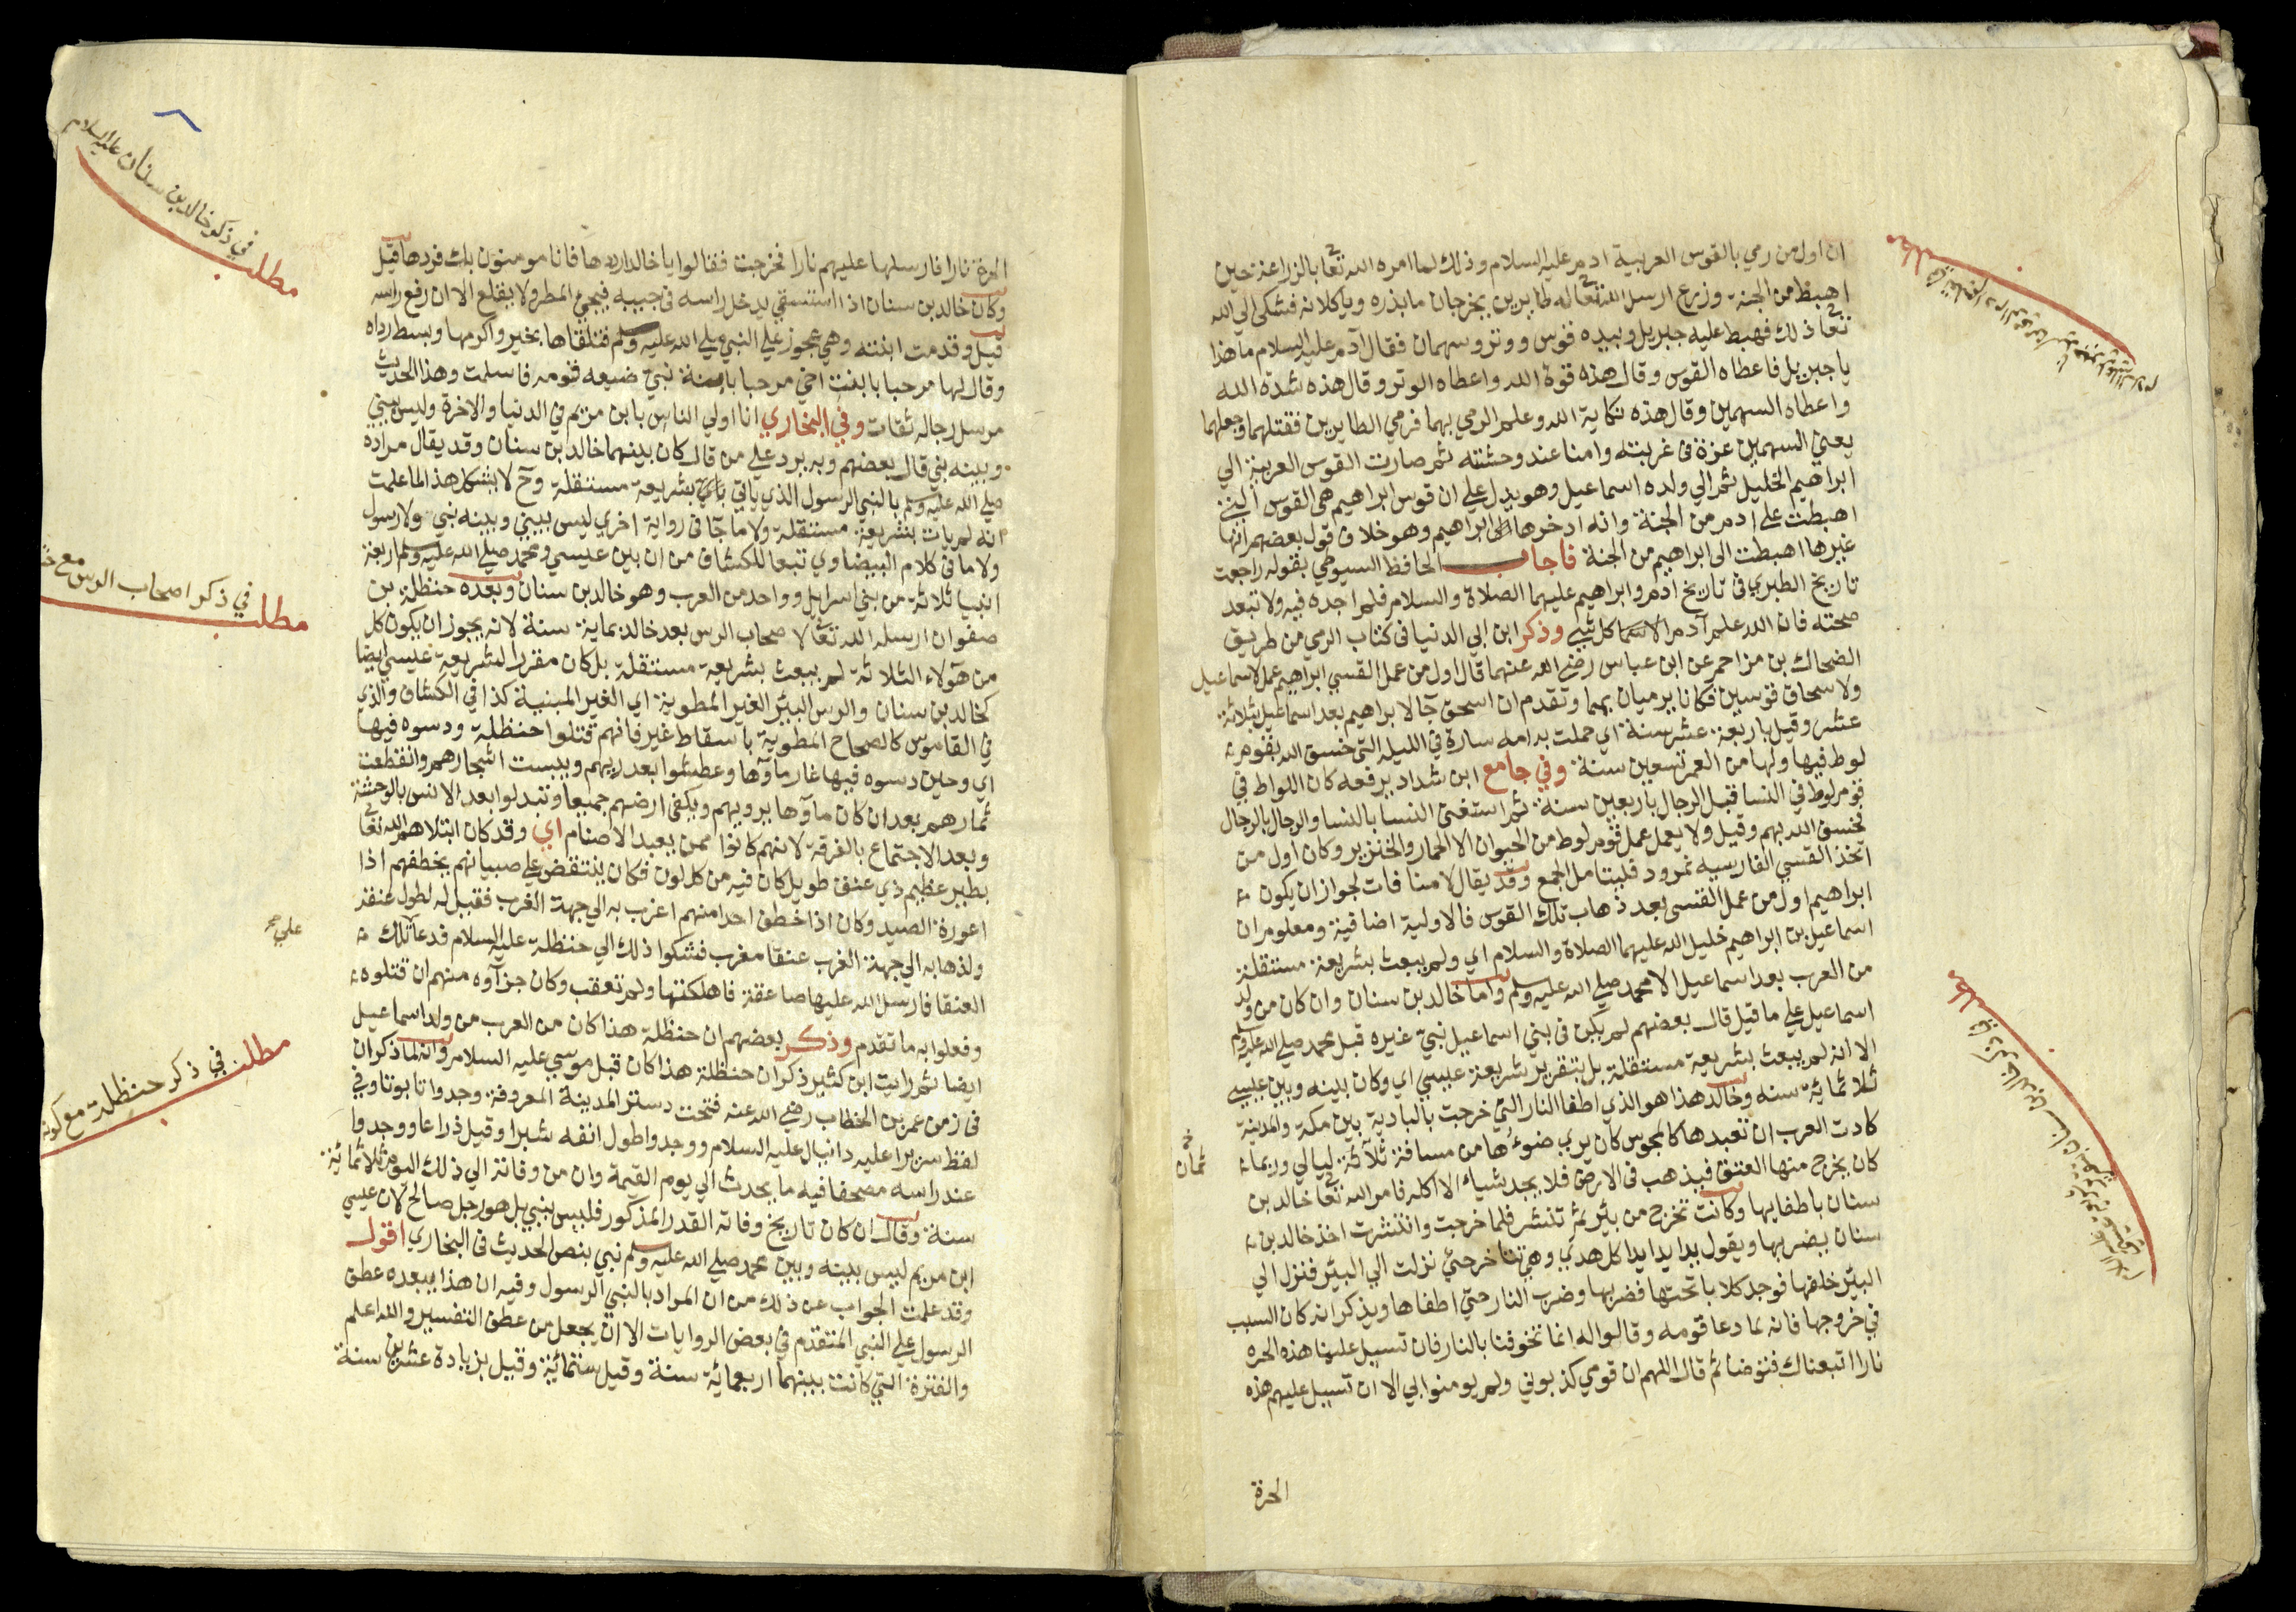 ان اول من رمي بالقوس العربية ادم عليه السلام وذلك لما امره الله تعا بالزراعة حين
اهبط من الجنة وزرع ارسل الله تعا له طايرين يخرجان ما بذره وياكلانه فشكي الي الله
تعا ذلك فهبط عليه جبريل وبيده قوس ووتر وسهمان فقال آدم عليه السلام ما هذا
يا جبريل فاعطاه القوس وقال هذه قوة الله واعطاه الوتر وقال هذه شدة الله
واعطاه السهمين وقال هذه نكاية الله وعلمه الرمي بهما فرمي الطايرين فقتلهما وجعلهما
يعني السهمين عزة في غربته وامنا عند وحشته ثم صارت القوس العربية الي
ابراهيم الخليل ثم الي ولده اسماعيل وهو يدل علي ان قوس ابراهيم هي القوس التي
اهبطت علي ادم من الجنة وانه ادخرها الى ابراهيم وهو خلاف قول بعضهم انها
غيرها اهبطت الى ابراهيم من الجنة فاجاب الحافظ السيوطي بقوله راجعت
تاريخ الطبري في تاريخ ادم وابراهيم عليهما الصلاة والسلام فلم اجده فيه ولا تبعد
صحته فان الله علم آدم الاسما كل شيي وذكر ابن ابي الدنيا في كتاب الرمي من طريق
الضحاك بن مزاحم عن ابن عباس رضي الله عنهما قال اول من عمل القسي ابراهيم عمل لاسماعيل
ولاسحاق قوسين فكانا يرميان بهما وتقدم ان اسحق جآ لابراهيم بعد اسماعيل بثلاثة
عشر وقيل باربعة عشر سنة اي حملت به امه سارة في الليلة التي خسف الله بقوم
لوط فيها ولها من العمر تسعين سنة وفي جامع ابن شداد يرفعه كان اللواط في
قوم لوط في النسا قبل الرجال باربعين سنة ثم استغني النسا بالنسا والرجال بالرجال
فخسف الله بهم وقيل ولا يعمل عمل قوم لوط من الحيوان الا الحمار والخنزير وكان اول من
اتخذ القسي الفارسيه نمرود فليتامل الجمع وقد يقال لا منافات لجواز ان يكون
ابراهيم اول من عمل القسى بعد ذهاب تلك القوس فالاولية اضافية ومعلوم ان
اسماعيل بن ابراهيم خليل الله عليهما الصلاة والسلام اي ولم يبعث بشريعة مستقلة
من العرب بعد اسماعيل الا محمد صلي الله عليه وسلم واما خالد بن سنان وان كان من ولد
اسماعيل علي ما قيل قال بعضهم لم يكن في بني اسماعيل نبيّ غيره قبل محمد صلي الله عليه وسلم
الا انه لم يبعث بشريعة مستقلة بل بتقرير شريعة عيسي اي وكان بينه وبين عيسي
ثلاثمائة سنه وخالد هذا هو الذي اطفا النار التي خرجت بالبادية بين مكة والمدينة
كادت العرب ان تعبدها كالمجوس كان يري ضوءُها من مسافة ثلاثة ليالي وربما
كان يخرج منها العنق فيذهب في الارض فلا يجد شياء الا اكله فامر الله تعا خالد بن
سنان باطفايها وكانت تخرج من بئر ثم تنشر فلما خرجت وانتشرت اخذ خالد بن
سنان يضربها ويقول بدا بدا بدا كل هدي وهي تتاخر حتي نزلت الي البئر فنزل الي
البئر خلفها فوجد كلابا تحتها فضربها وضرب النار حتي اطفاها ويذكر انه كان السبب
في خروجها فانه لما دعا قومه وقالوا له انما تخوفنا بالنار فان تسيل علينا هذه الحره
نارا اتبعناك فتوضا ثم قال اللهم ان قومي كذبوني ولم يومنوا بي الا ان تسيل عليهم هذه
الحرة
ثمان
مطلب
مطلب
الحرة نارا فارسلها عليهم نارا فخرجت فقالوا يا خالد ارددها فانا مومنون بك فردها قيل
وكان خالد بن سنان اذا استسقي يدخل راسه في جيبه فيجئ المطر ولا يقلع الا ان رفع راسه
قيل وقدمت ابنته وهي عجوز علي النبي صلي الله عليه وسلم فتلقاها بخير واكرمها وبسط رداه
وقال لها مرحبا بابنت اخي مرحبا بابنة نبيّ ضيعه قومه فاسلمت وهذا الحديث
مرسل رجاله ثقات وفي البخاري انا اولي الناس بابن مريم في الدنيا والاخرة وليس بيني
وبينه نبي قال بعضهم وبه يرد علي من قال كان بينهما خالد بن سنان وقد يقال مراده
صلي الله عليه وسلم بالنبي الرسول الذي ياتي بشريعة مستقلة وح لا يشكل هذا لما علمت
انه لم يات بشريعة مستقلة ولا ما جآ في رواية اخري ليس بيني وبينه نبي ولا رسول
ولا ما في كلام البيضاوي تبعا للكشاف من ان بين عيسي ومحمد صلي الله عليه وسلم اربعة
انبيا ثلاثة من بني اسرايل وواحد من العرب وهو خالد بن سنان وبعده حنظلة بن
صفوان ارسله الله تعا لاصحاب الرس بعد خالد بماية سنة لانه يجوز ان يكون كل
من هؤلاء الثلاثة لم يبعث بشريعة مستقلة بل كان مقررا لشريعة عيسي ايضا
كخالد بن سنان والرس البئر الغير المطوية اي الغير المبنية كذا في الكشاف والذي
في القاموس كالصحاح المطوية باسقاط غير فانهم قتلوا حنظلة ودسوه فيها
اي وحين دسوه فيها غار ماؤها وعطشوا بعد ريهم ويبست اشجارهم وانقطعت
ثمارهم بعد ان كان ماؤها يرويهم ويكفي ارضهم جميعا وتبدلوا بعد الانس بالوحشة
وبعد الاجتماع بالفرقة لانهم كانوا ممن يعبد الاصنام اي وقد كان ابتلاهم الله تعا
بطير عظيم ذي عنق طويل كان فيه من كل لون فكان ينقض علي صبيانهم يخطفهم اذا
اعوزه الصيد وكان اذا خطف احدا منهم اغرب به الي جهة الغرب فقيل له لطول عنقه
ولذهابه الي جهة الغرب عنقا مغرب فشكوا ذلك الي حنظلة عليه السلام فدعا تلك
العنقا فارسل الله عليها صاعقة فاهلكتها ولم تعقب وكان جزآوه منهم ان قتلوه
وفعلوا به ما تقدم وذكر بعضهم ان حنظلة هذا كان من العرب من ولد اسماعيل
ايضا ثم رايت ابن كثير ذكر ان حنظلة هذا كان قبل موسي عليه السلام وانه لما ذكر ان
في زمن عمر بن الخطاب رضي الله عنه فتحت دستر المدينة المعروفة وجدوا تابوتا وفي
لفظ سريرا عليه دانيال عليه السلام ووجدوا طول انفه شبرا وقيل ذراعا ووجدوا
عند راسه مصحفا فيه ما يحدث الي يوم القيمة وان من وفاته الي ذلك اليوم ثلاثمائة
سنة وقال ان كان تاريخ وفاته القدر المذكور فليس بنبي بل هو رجل صالح لان عيسي
ابن مريم ليس بينه وبين محمد صلي الله عليه وسلم نبي بنص الحديث في البخاري اقول
وقد علمت الجواب عن ذلك من ان المراد بالنبي الرسول وفيه ان هذا يبعده عطف
الرسول علي النبي المتقدم في بعض الروايات الا ان يجعل من عطف التفسير والله اعلم
والفترة التي كانت بينهما اربعماية سنة وقيل ستمائة وقيل بزيادة عشرين سنة
مطلب في ذكر خالد بن سنان عليه السلام
مطلب في ذكر اصحاب الرس مع
علي
مطلب في ذكر حنظلة مع